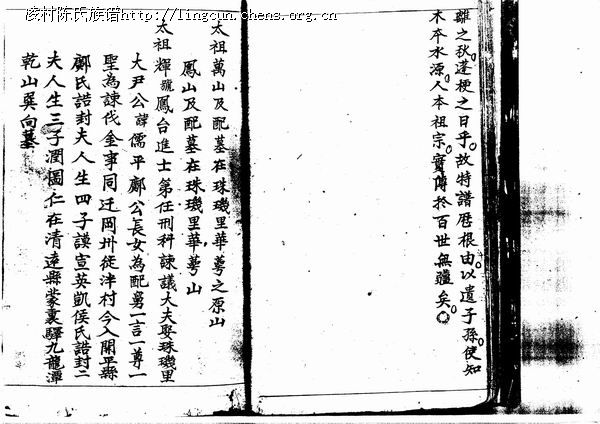 凌村陈氏族谱 http://lingcun.chens.org.cn
離之秋蓬梗之日乎故特譜歷根由以遺子孫使知
木本水源人本祖宗實傳於百世無疆矣
太祖萬山及配墓在珠璣里華萼之原山
鳳山及配墓在珠璣里華萼山
太祖輝號鳳台進士第任刑科諫議大夫娶珠璣里
大尹公諱儒平鄺公長女為配舅一言一尊一
聖為諫伐金事同迁岡州徙泮村今入開平縣
鄺氏誥封夫人生四子謨宣英凱侯氏誥封二
夫人生三子潤國仁在清遠縣蒙裏驛九龍潭
乾山巽向墓